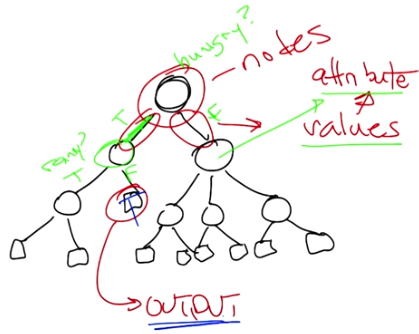 hungry?
nodes
attribute
T
F
values
rainy?
T
F
T
OUTPUT